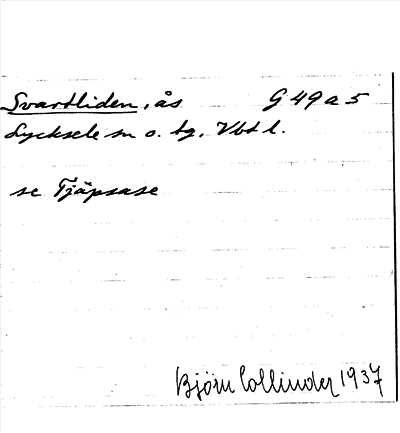 Svartliden, ås G 49 a 5
Lycksele sn o. tg, Vbtl.
se Tjäpsase
Björn Collinder 1937